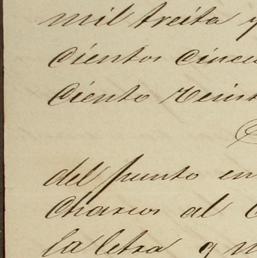 mil treita y
cientos cincu
Ciento veint
del punto en
Charcos al
la letra q